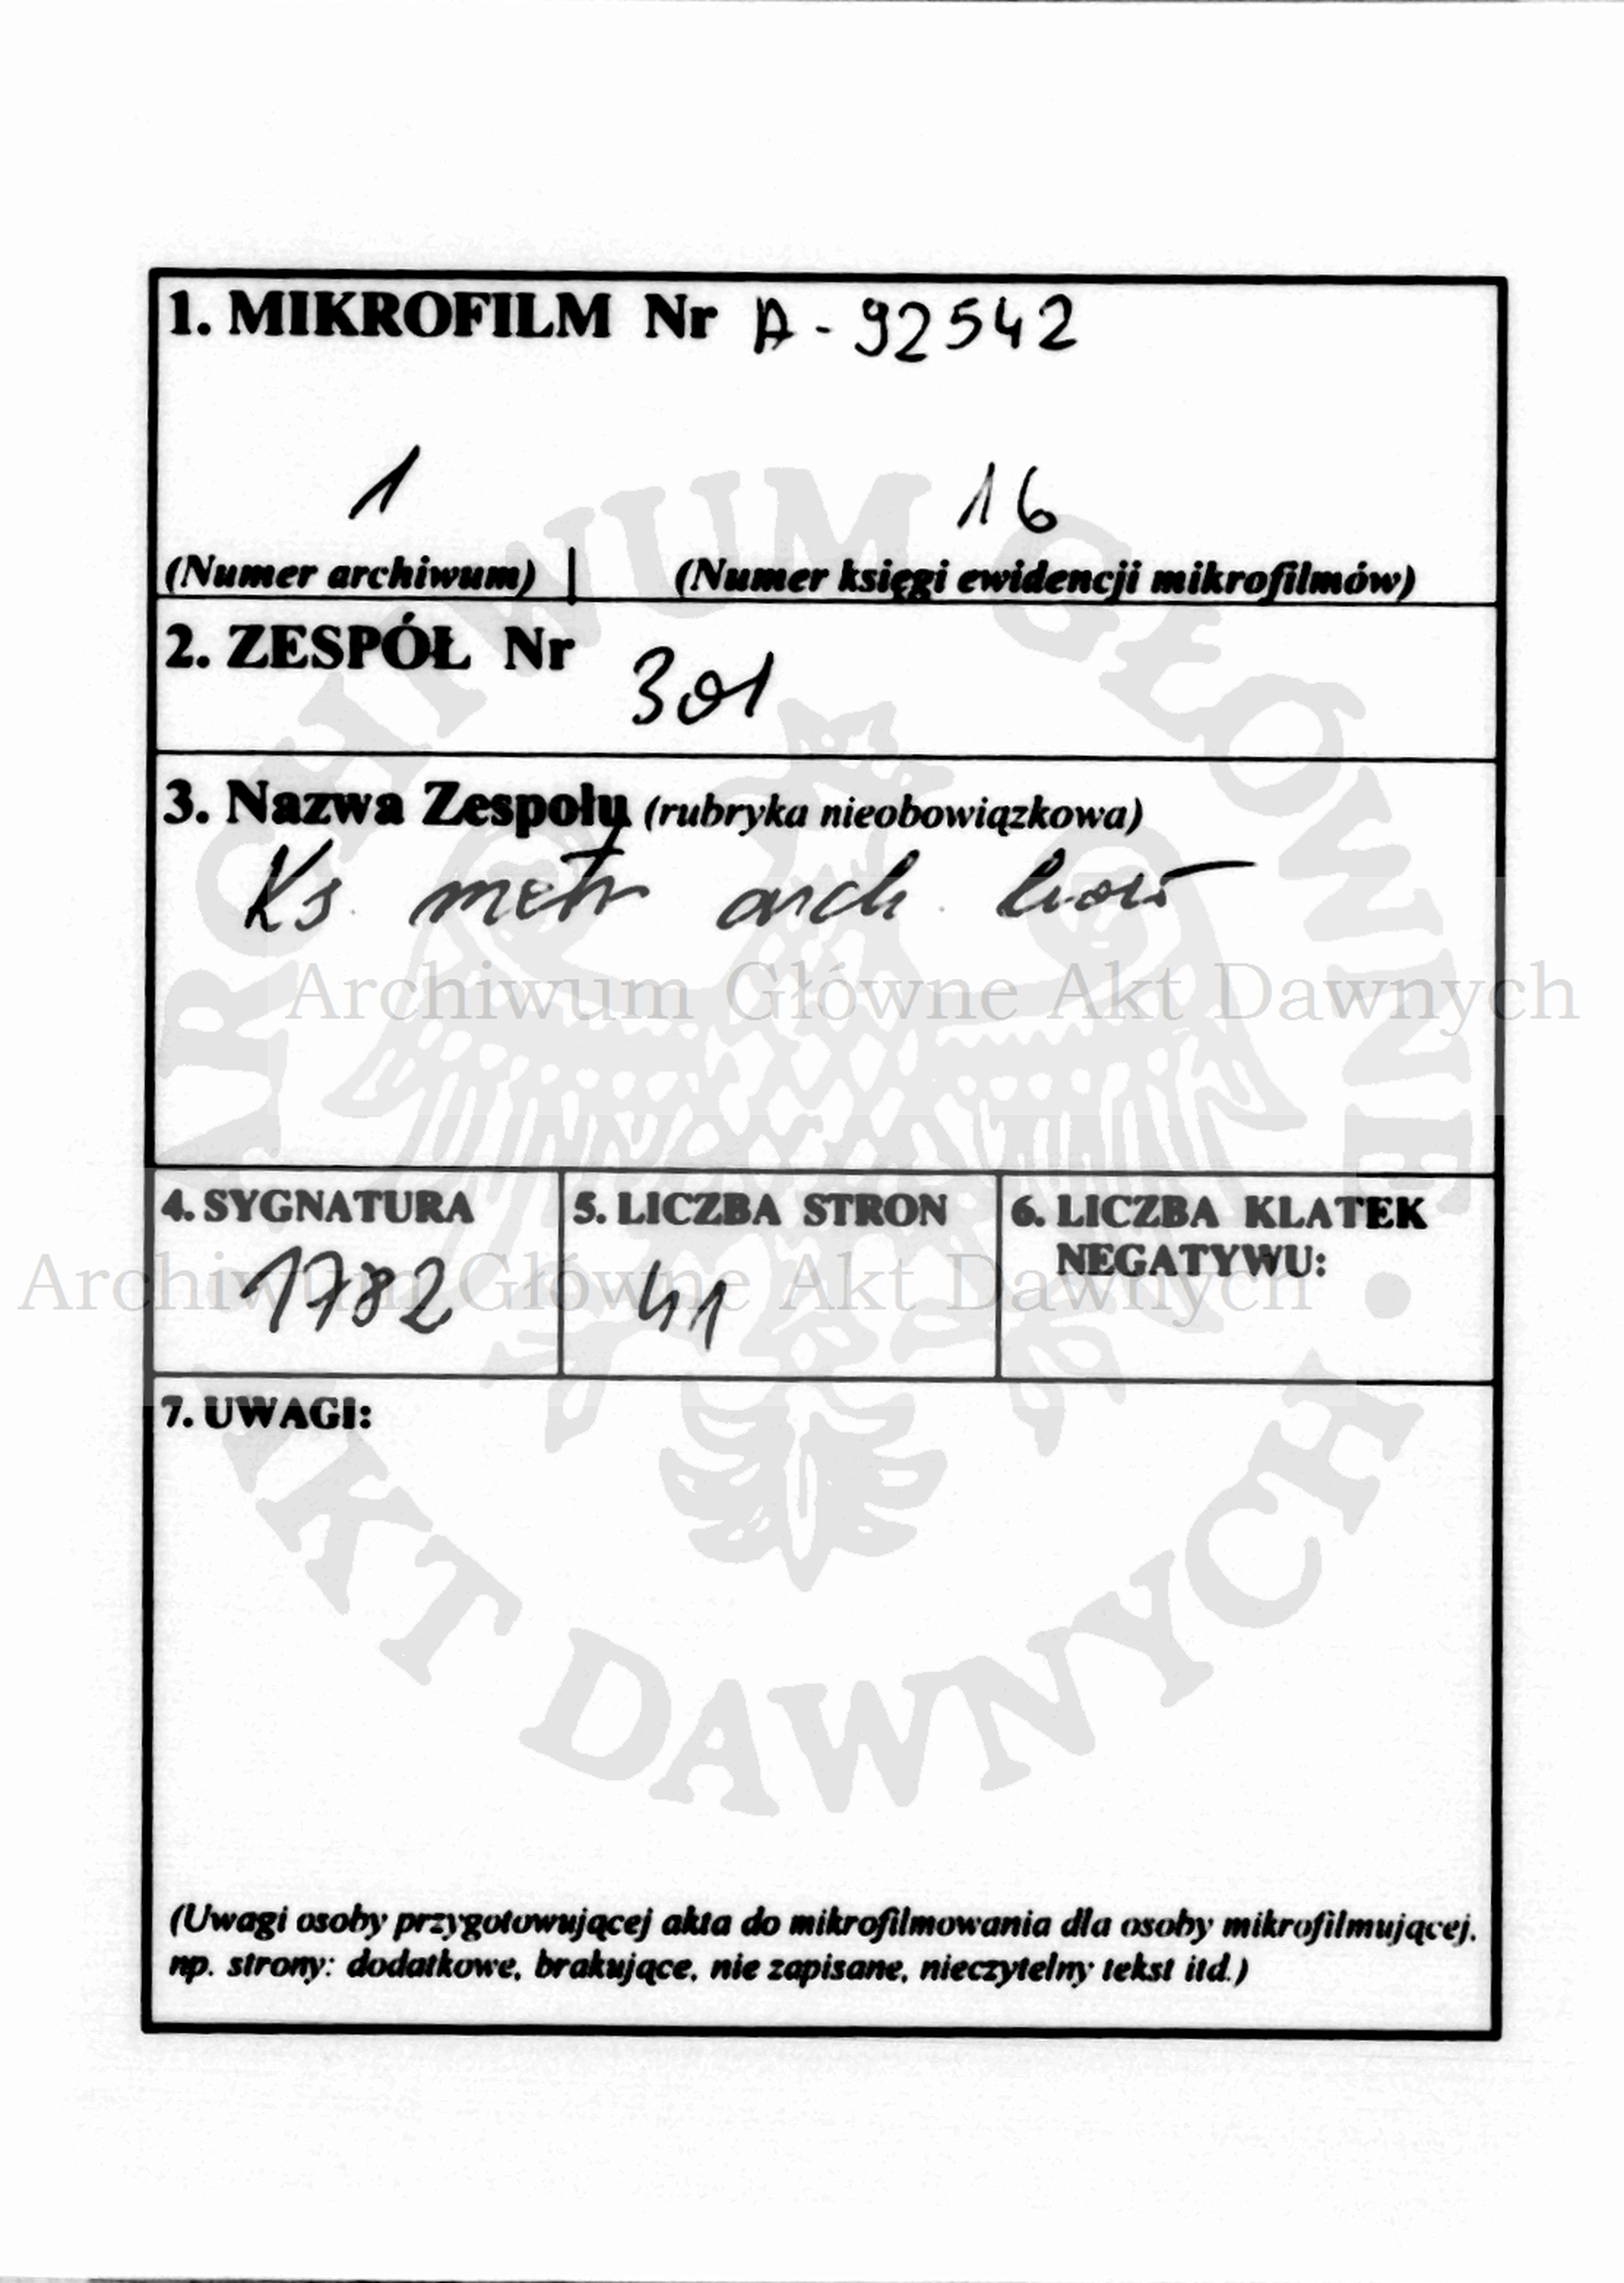 1. MIKROFILM Nr A - 92542
1 16
(Numer archiwum) | (Numer księgi ewidencji mikrofilmów)
2. ZESPÓŁ Nr 301
3. Nazwa Zespołu (rubryka nieobowiązkowa)
Ks. metr arch.
Archiwum Główne Akt Dawnych
4. SYGNATURA
1782
5. LICZBA STRON
41
6. LICZBA KLATEK
NEGATYWU:
Archiwum Główne Akt Dawnych
7. UWAGI:
(Uwagi osoby przygotowującej akta do mikrofilmowania dla osoby mikrofilmującej,
np. strony: dodatkowe, brakujące, nie zapisane, nieczytelny tekst itd.)
ARCHIWUM GŁÓWNE • AKT DAWNYCH